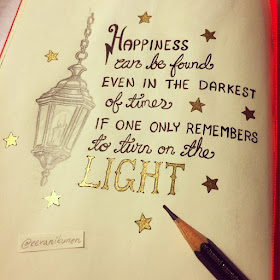 HAPPINESS
can be found
EVEN IN THE DARKEST
of times
IF ONE ONLY REMEMBERS
to turn on the
LIGHT